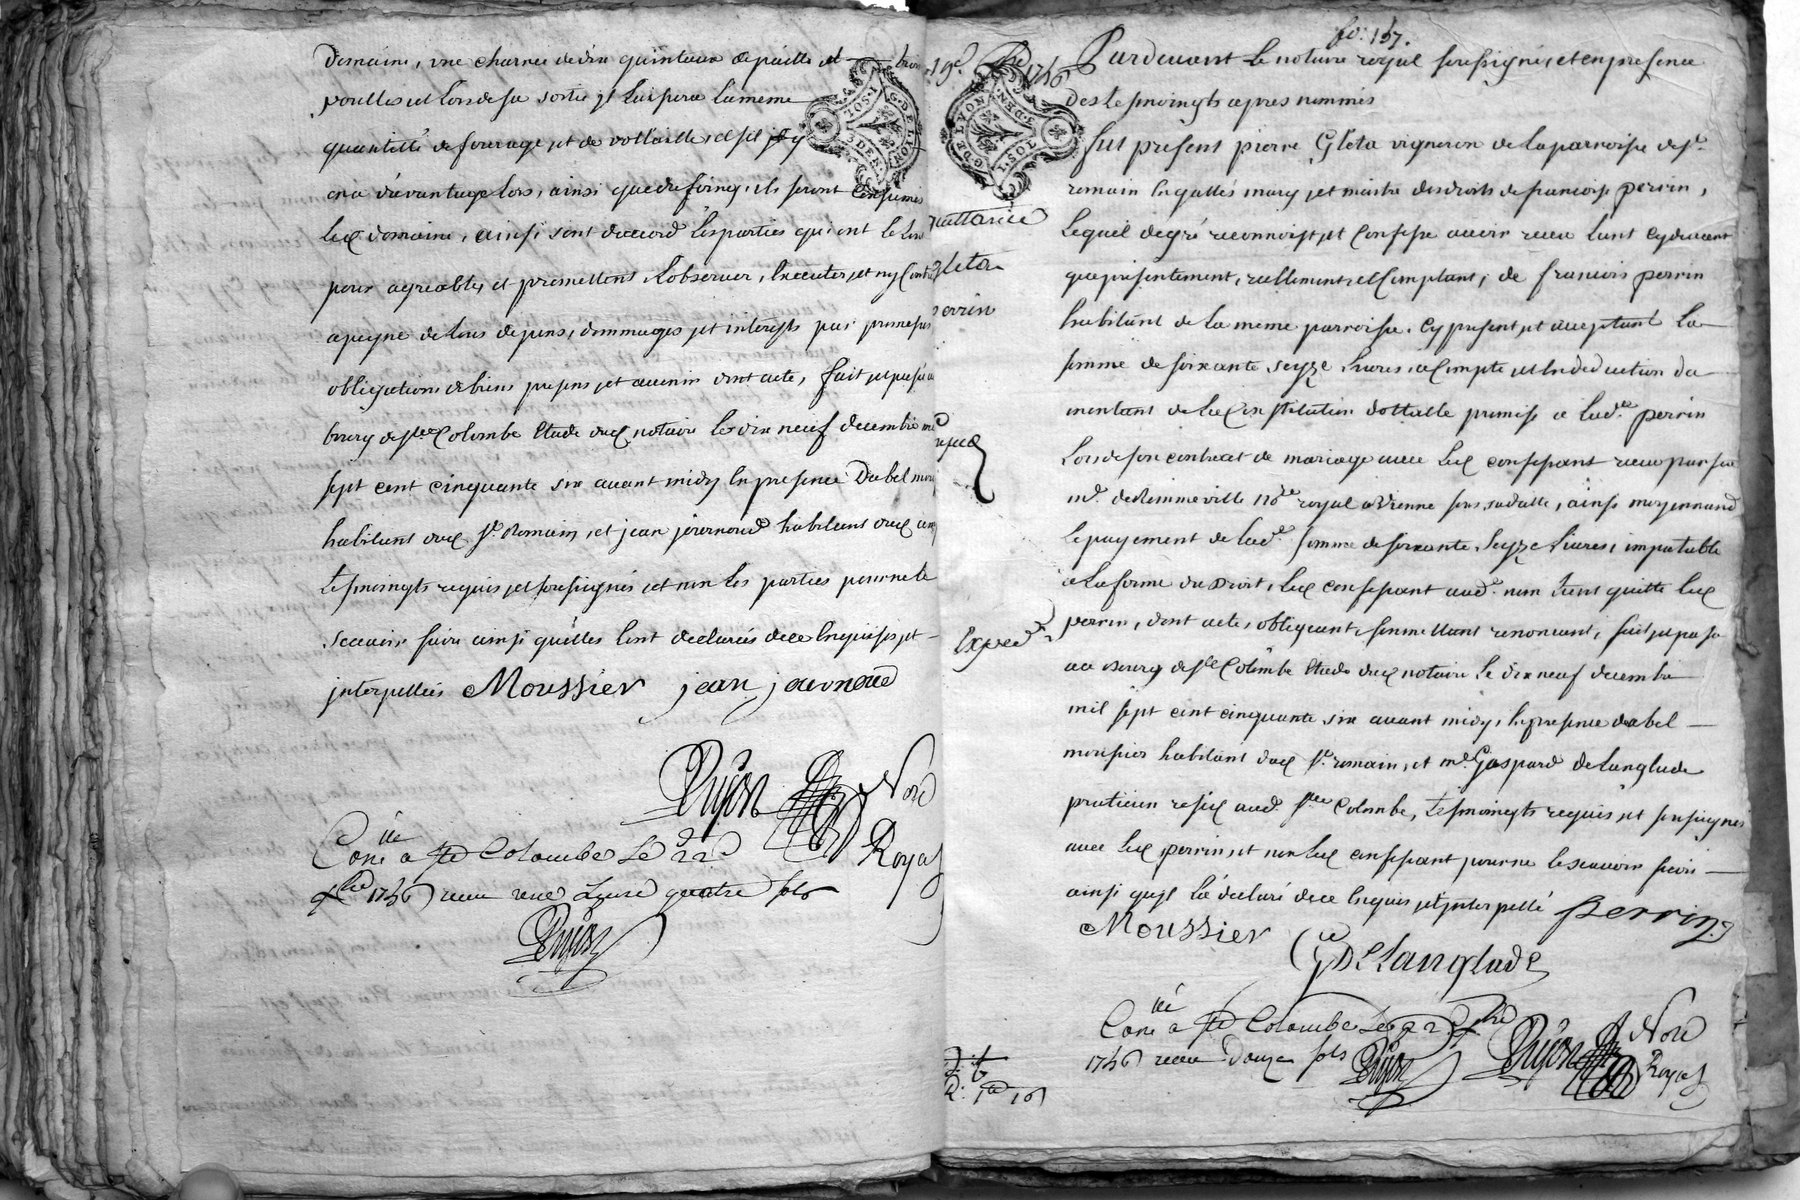 Domaine, une charrée de dix quintaux de paille et trois
poulles et lors de sa sortie il laissera la meme
quantité de fourage et de vollaille, et s'il y
en a d'avantage lors, ainsi que de foing, ils seront consumés
led. domaine, ainsi sont d'accord lesparties qui ont le tout
pour agreable, et promettent l'observer, l'executer, et ny contre
apeyne de tous depens, dommages et interests par promesses
obligations de biens presens et avenir dont acte, fait et passé au
bourg de ste Colombe Etude dud. notaire le dix neuf decembre mil
sept cent cinquante six avant midy En presence D'abel mou
habitant dud. st. Romain, et jean journoud habitant dud.
tesmoingts requis et soussignés, et non les parties pour ne le
scavoir faire ainsi quelles l'ont declarées de ce Enquises et
interpellées Moussier jean journoud
Dujon Nore
Royal
Conlle a Ste Colombe Le 22 d
Xbre 1756 receu une Livre quatre sols
Dujon
fo: 157.
19e. Xbre 1756
G. DE LYON
1. SOL. 1. DEN.
quittance
gleta
perrin
Exped
Pardevant le notaire royal soussigné, et en presence
des tesmoingts apres nommés
fut present pierre Gleta vigneron de la parroisse de st.
romain Engallés mary et maitre des droits de francoise perrin,
lequel de gré reconnoist et Confesse avoir receu tant cydevant
que presentement, reellement et Comptant, de francois perrin
habitant de la meme parroisse. cy present et acceptant la
somme de soixante seyze livres, a Compte et En deduction du
montant de la Constitution dottalle promise a lad.te perrin
lors de son contract de mariage avec led. confessant receu par feu
me. de Remmeville nore royal a Vienne sous sa datte, ainsi moyennand
le payement de lad. somme de soixante seyze livres, imputable
a la forme du Droit, led. confessant aud. nom tient quitte led.
perrin, dont acte, obligeant, soumettant renoncant, fait et passé
au Bourg de ste Colombe Etude dud. notaire le dix neuf decembre
mil sept cent cinquante six avant midy, En presence d'abel
moussier habitant dud. st. romain, et me. Gaspard delanglade
praticien resid. aud. ste Colombe, tesmoingts requis et soussignés
avec led. perrin, et non led. confessant pour ne le scavoir faire
ainsi quil l'a declaré de ce Enquis et interpellé Perrin
Moussier G DeLanglade
Conlle a Ste Colombe Le 22 Xbre
1756 receu Douze sols Dujon Dujon Nore
Royal